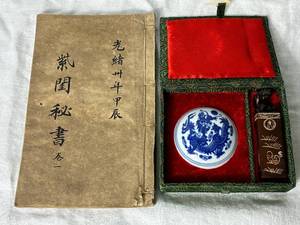 光緒卅年甲辰
紫閨秘書 卷一